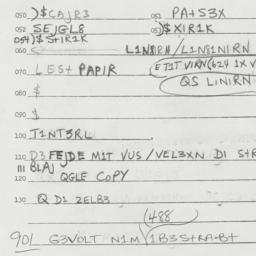 050 )$CAJR3 051 PA+S3X
052 SEJGL8 053 )$XIR1K
054 )$S+IR1K
060 L1NIRN/L1N81NIRN
070 LES+ PAPIR ETIT VIRN(624 1X V
080 $ QS LINIRN
090 $
100 T1NT3RL
110 D3 FEIDE M1T VUS/VEL3XN DI S+R
111 BLAJ
120 QGLE COPY
130 Q D1 2ELB3
(488
901 G3VOLT N1M/1B3S+RA-B+